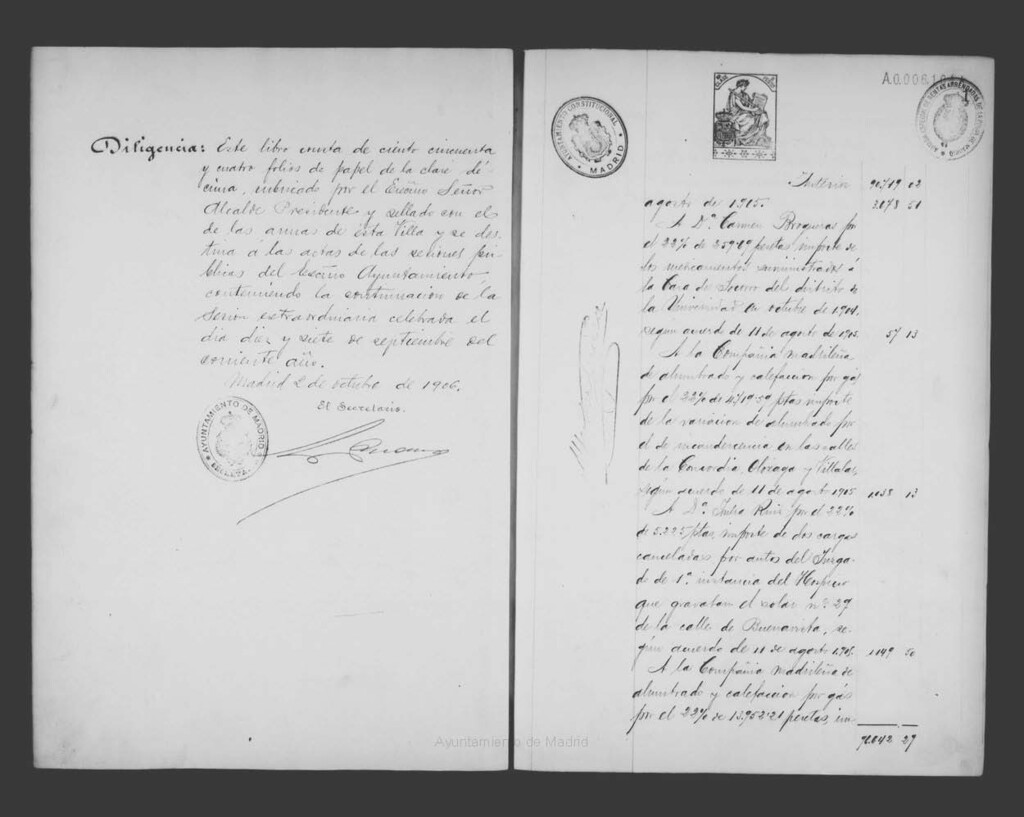 Diligencia: Este libro consta de ciento cincuenta
y cuatro folios de papel de la clase dé-
cima, rubricado por el Excmo Señor
Alcalde Presidente y sellado con el
de las armas de esta Villa y se des-
tina á las actas de las sesiones pú-
blicas del Excmo Ayuntamiento,
conteniendo la continuacion de la
Sesion extraordinaria celebrada el
dia diez y siete de septiembre del
corriente año.
Madrid 2 de octubre de 1906.
El Secretario.
AYUNTAMIENTO DE MADRID
AYUNTAMIENTO CONSTITUCIONAL
MADRID
A.0.006.1
Anterior
agosto de 1905. 3.078 51
A Dª Carmen por
el 22% de 259'69 pesetas, importe de
los medicamentos suministrados á
la Casa de Socorro del distrito de
la Universidad en octubre de 1904.
segun acuerdo de 11 de agosto de 1905. 57 13
A la Compañia madrileña
de alumbrado y calefaccion por gás
por el 22% de ptas importe
de la variacion de alumbrado por
el de incandescencia en las calles
de la Concordia, Olózaga y Villalar,
segun acuerdo de 11 de agosto 1905 1.038 13
A Dn. Julio Ruiz por el 22%
de 5.225 ptas, importe de dos cargas
canceladas por autos del Juzga-
do de 1ª instancia del Hospicio
que gravaban el solar nº 27
de la calle de Buenavista, se-
gún acuerdo de 11 de agosto 1905. 1.149 50
A la Compañia madrileña de
alumbrado y calefaccion por gás
por el 22% de 13.952'21 pesetas, im-
27
Ayuntamiento de Madrid